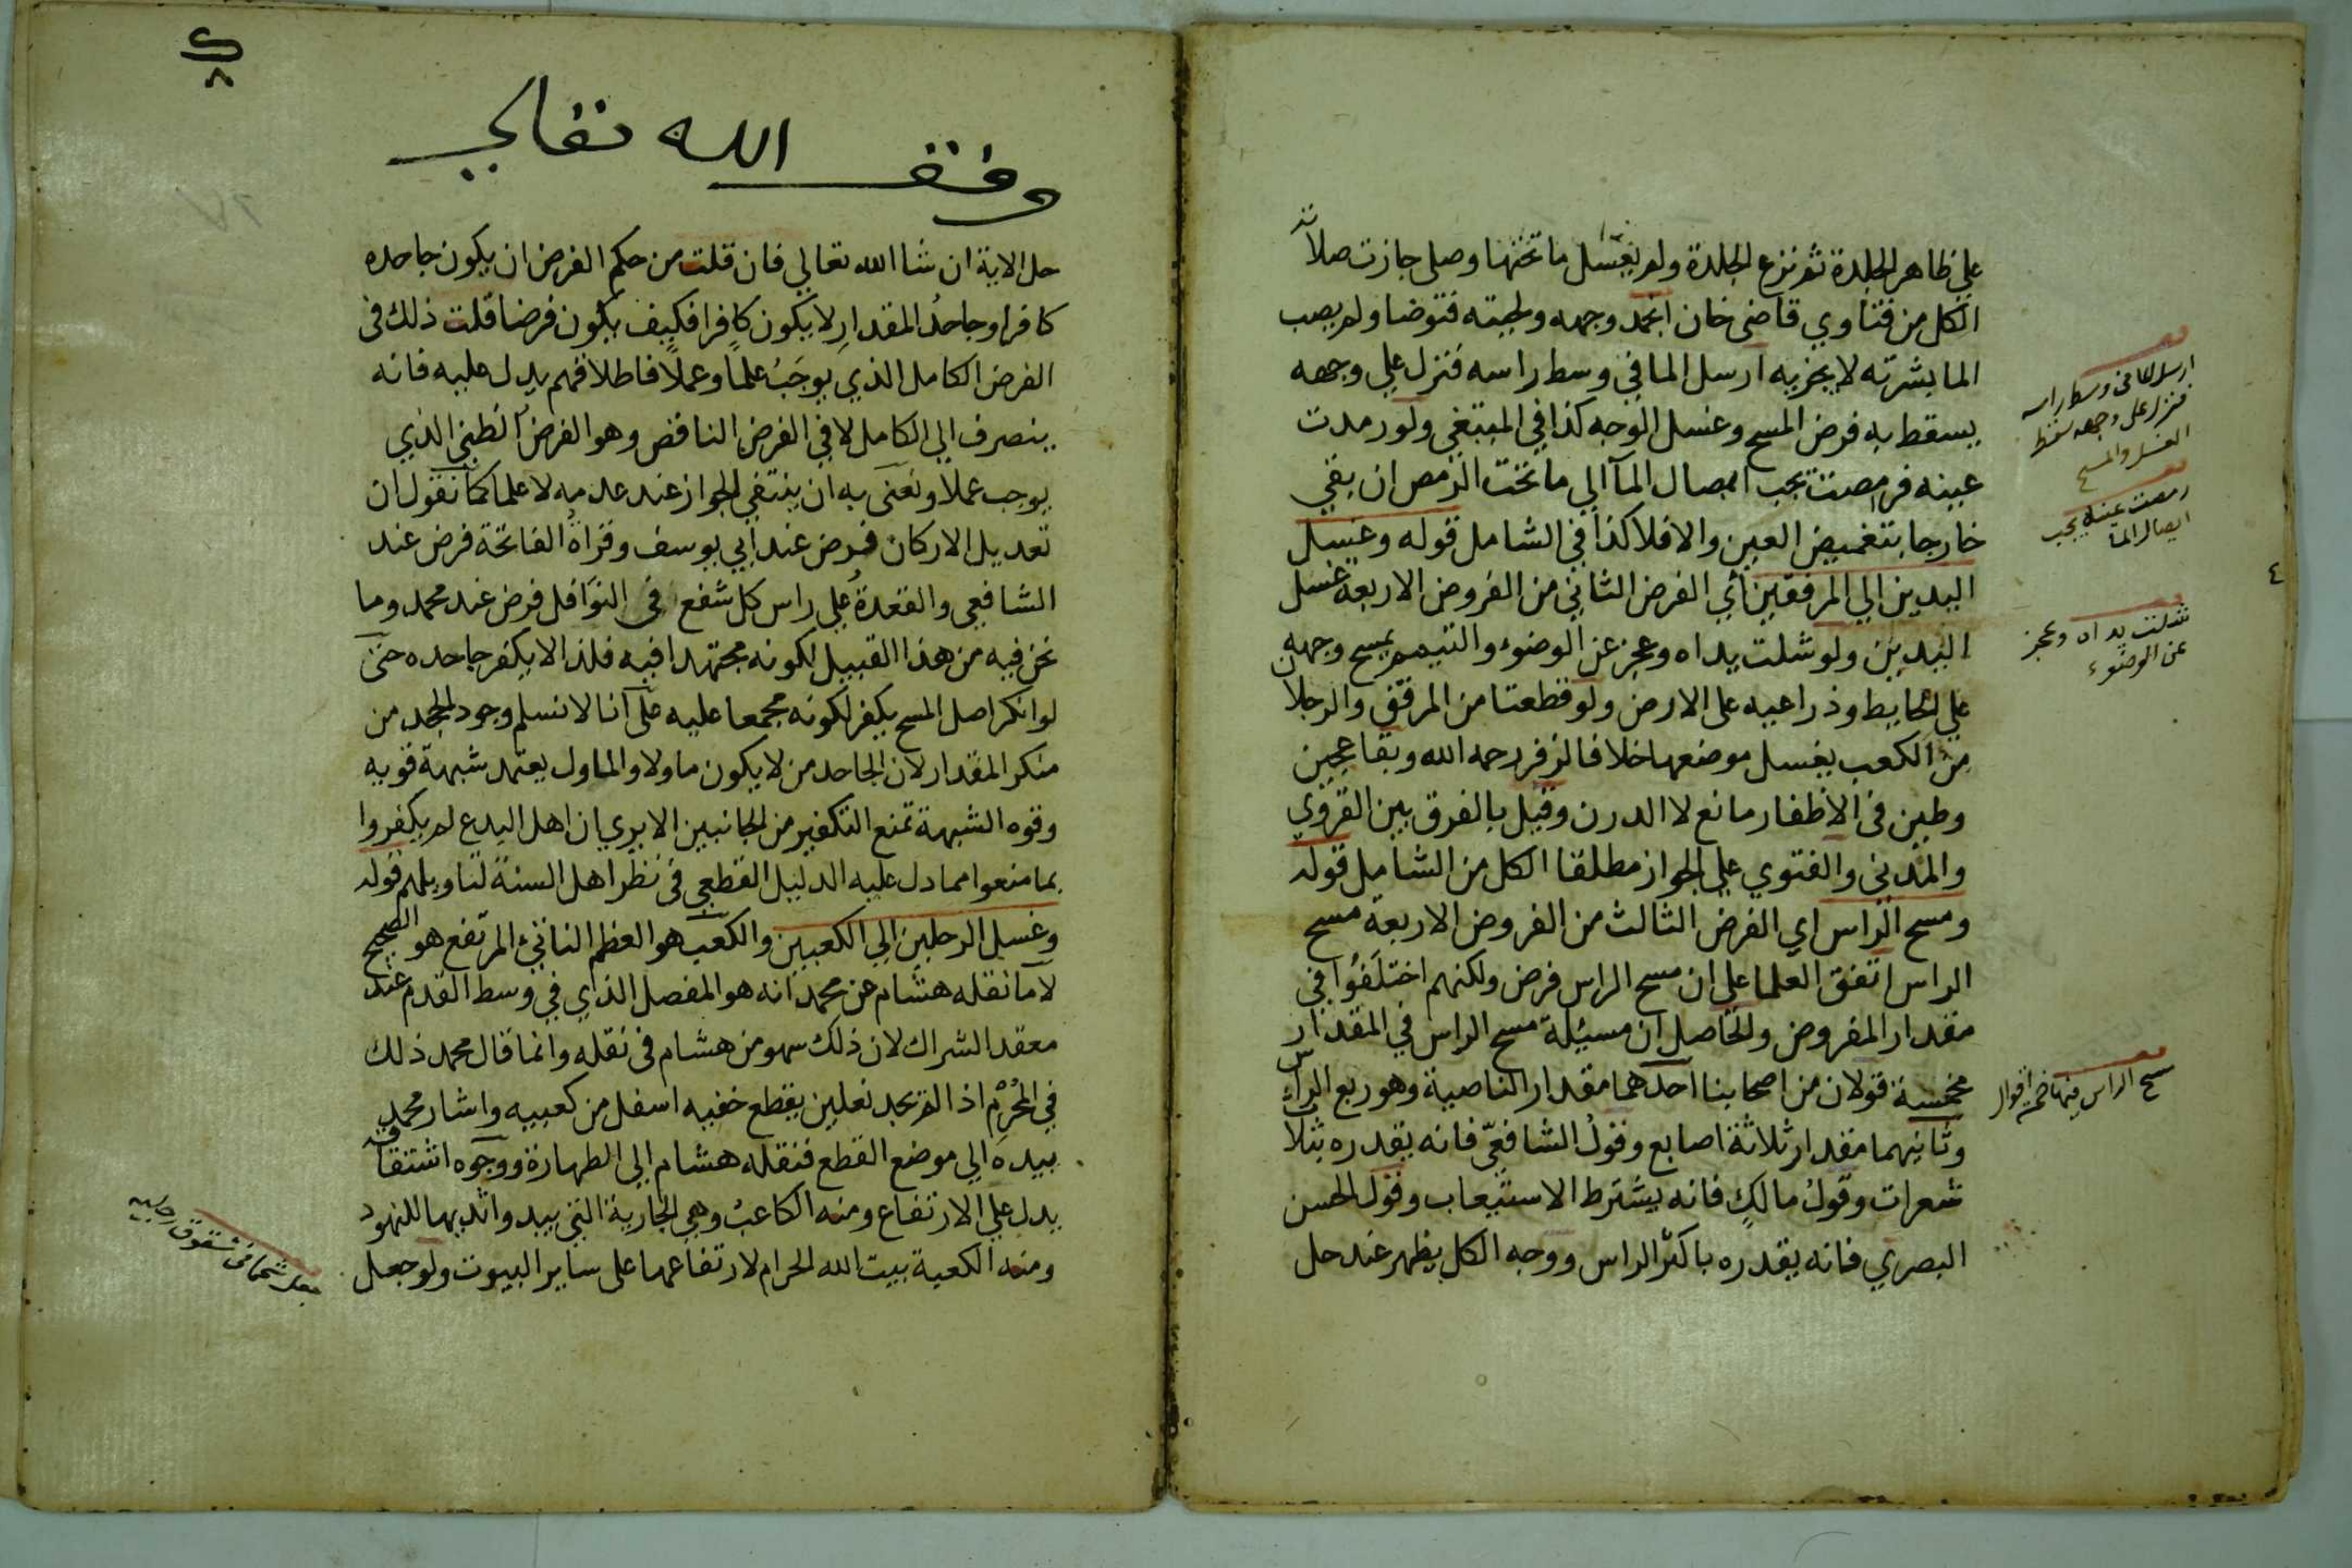 على ظاهر الجلدة ثم نزع الجلدة ولم يغسل ما تحتها وصلى جازت صلاته
الكل من فتاوي قاضى خان انجمد وجهه ولحيته فتوضا ولم يصب
الما بشرته لا يجزيه ارسل الما في وسط راسه فنزل على وجهه
يسقط به فرض المسح وغسل الوجه كذا في المبتغي ولو رمدت
عينه فرمصت يجب ايصال المآ الى ما تحت الرمص ان بقي
خارجا بتغميض العين والا فلا كذا في الشامل قوله وغسل
اليدين الي المرفقين أي الفرض الثاني من الفروض الاربعة غسل
اليدين ولو شلت يداه وعجز عن الوضوء والتيمم يمسح وجهه
على الحايط وذراعيه على الارض ولو قطعتا من المرفق والرجلان
من الكعب يغسل موضعها خلافا لزفر رحمه الله وبقا عجين
وطين فى الاظفار مانع لا الدرن وقيل بالفرق بين القروي
والمدنى والفتوي على الجواز مطلقا الكل من الشامل قوله
ومسح الراس اي الفرض الثالث من الفروض الاربعة مسح
الراس اتفق العلما على ان مسح الراس فرض ولكنهم اختلفوا في
مقدار المفروض والحاصل ان مسيلة مسح الراس في المقدار
مخمسة قولان من اصحابنا احدهما مقدار الناصية وهو ربع الراس
وثانيهما مقدار ثلاثة اصابع وقول الشافعي فانه يقدره بثلاث
شعرات وقول مالك فانه يشترط الاستيعاب وقول الحسن
البصري فانه يقدره باكثر الراس ووجه الكل يظهر عند حل
ارسل الما فى وسط راسه
فنزل على وجهه سقط
الغسل والمسح
رمصت عينه يجب
ايصال الما
٤
شلت يداه وعجز
عن الوضوء
مسح الراس فيها خمسة اقوال
٨
وقف الله تعالى
حل الاية ان شا الله تعالي فان قلت من حكم الفرض ان يكون جاحده
كافرا وجاحد المقدار لا يكون كافرا فكيف يكون فرضا قلت ذلك فى
الفرض الكامل الذي يوجب علما وعملا فاطلاقهم يدل عليه فانه
ينصرف الي الكامل لا في الفرض الناقص وهو الفرض الظني الذي
يوجب عملا ونعنى به ان ينتفي الجواز عند عدمه لا علما كما نقول ان
تعديل الاركان فرض عند ابي يوسف وقراة الفاتحة فرض عند
الشافعي والقعدة على راس كل شفع فى النوافل فرض عند محمد وما
نحن فيه من هذا القبيل لكونه مجتهدا فيه فلذا لا يكفر جاحده حتى
لو انكر اصل المسح يكفر لكونه مجمعا عليه على انا لا نسلم وجود الجحد من
منكر المقدار لان الجاحد من لا يكون ماولا والماول يعتمد شبهة قويه
وقوه الشبهة تمنع التكفير من الجانبين الا يري ان اهل البدع لم يكفروا
بما منعوا مما دل عليه الدليل القطعي فى نظر اهل السنة لتاويلهم قوله
وغسل الرجلين الي الكعبين والكعب هو العظم الناتئ المرتفع هو الصحيح
لا ما نقله هشام عن محمد انه هو المفصل الذي في وسط القدم عند
معقد الشراك لان ذلك سهو من هشام فى نقله وانما قال محمد ذلك
في المحرم اذا لم يجد نعلين يقطع خفيه اسفل من كعبيه واشار محمد
بيده الى موضع القطع فنقله هشام الى الطهارة ووجوه اشتقاقه
يدل على الارتفاع ومنه الكاعب وهي الجارية التي يبدو اثديها للنهود
ومنه الكعبة بيت الله الحرام لارتفاعها على ساير البيوت ولو جعل
جعل شحما فى شقوق رجليه